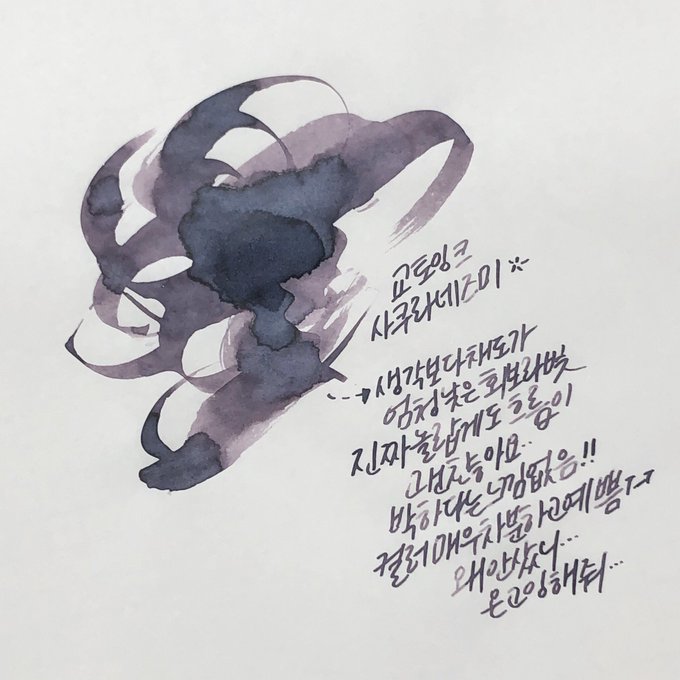 교토잉크
사쿠라네즈미
생각보다 채도가
엄청 낮은 회보라빛
진짜 놀랍게도 흐름이
괜찮아요..
박하다는 느낌 없음!!
컬러 매우 차분하고 예쁨ㅜㅜ
왜 안샀니...
온고잉해줘...